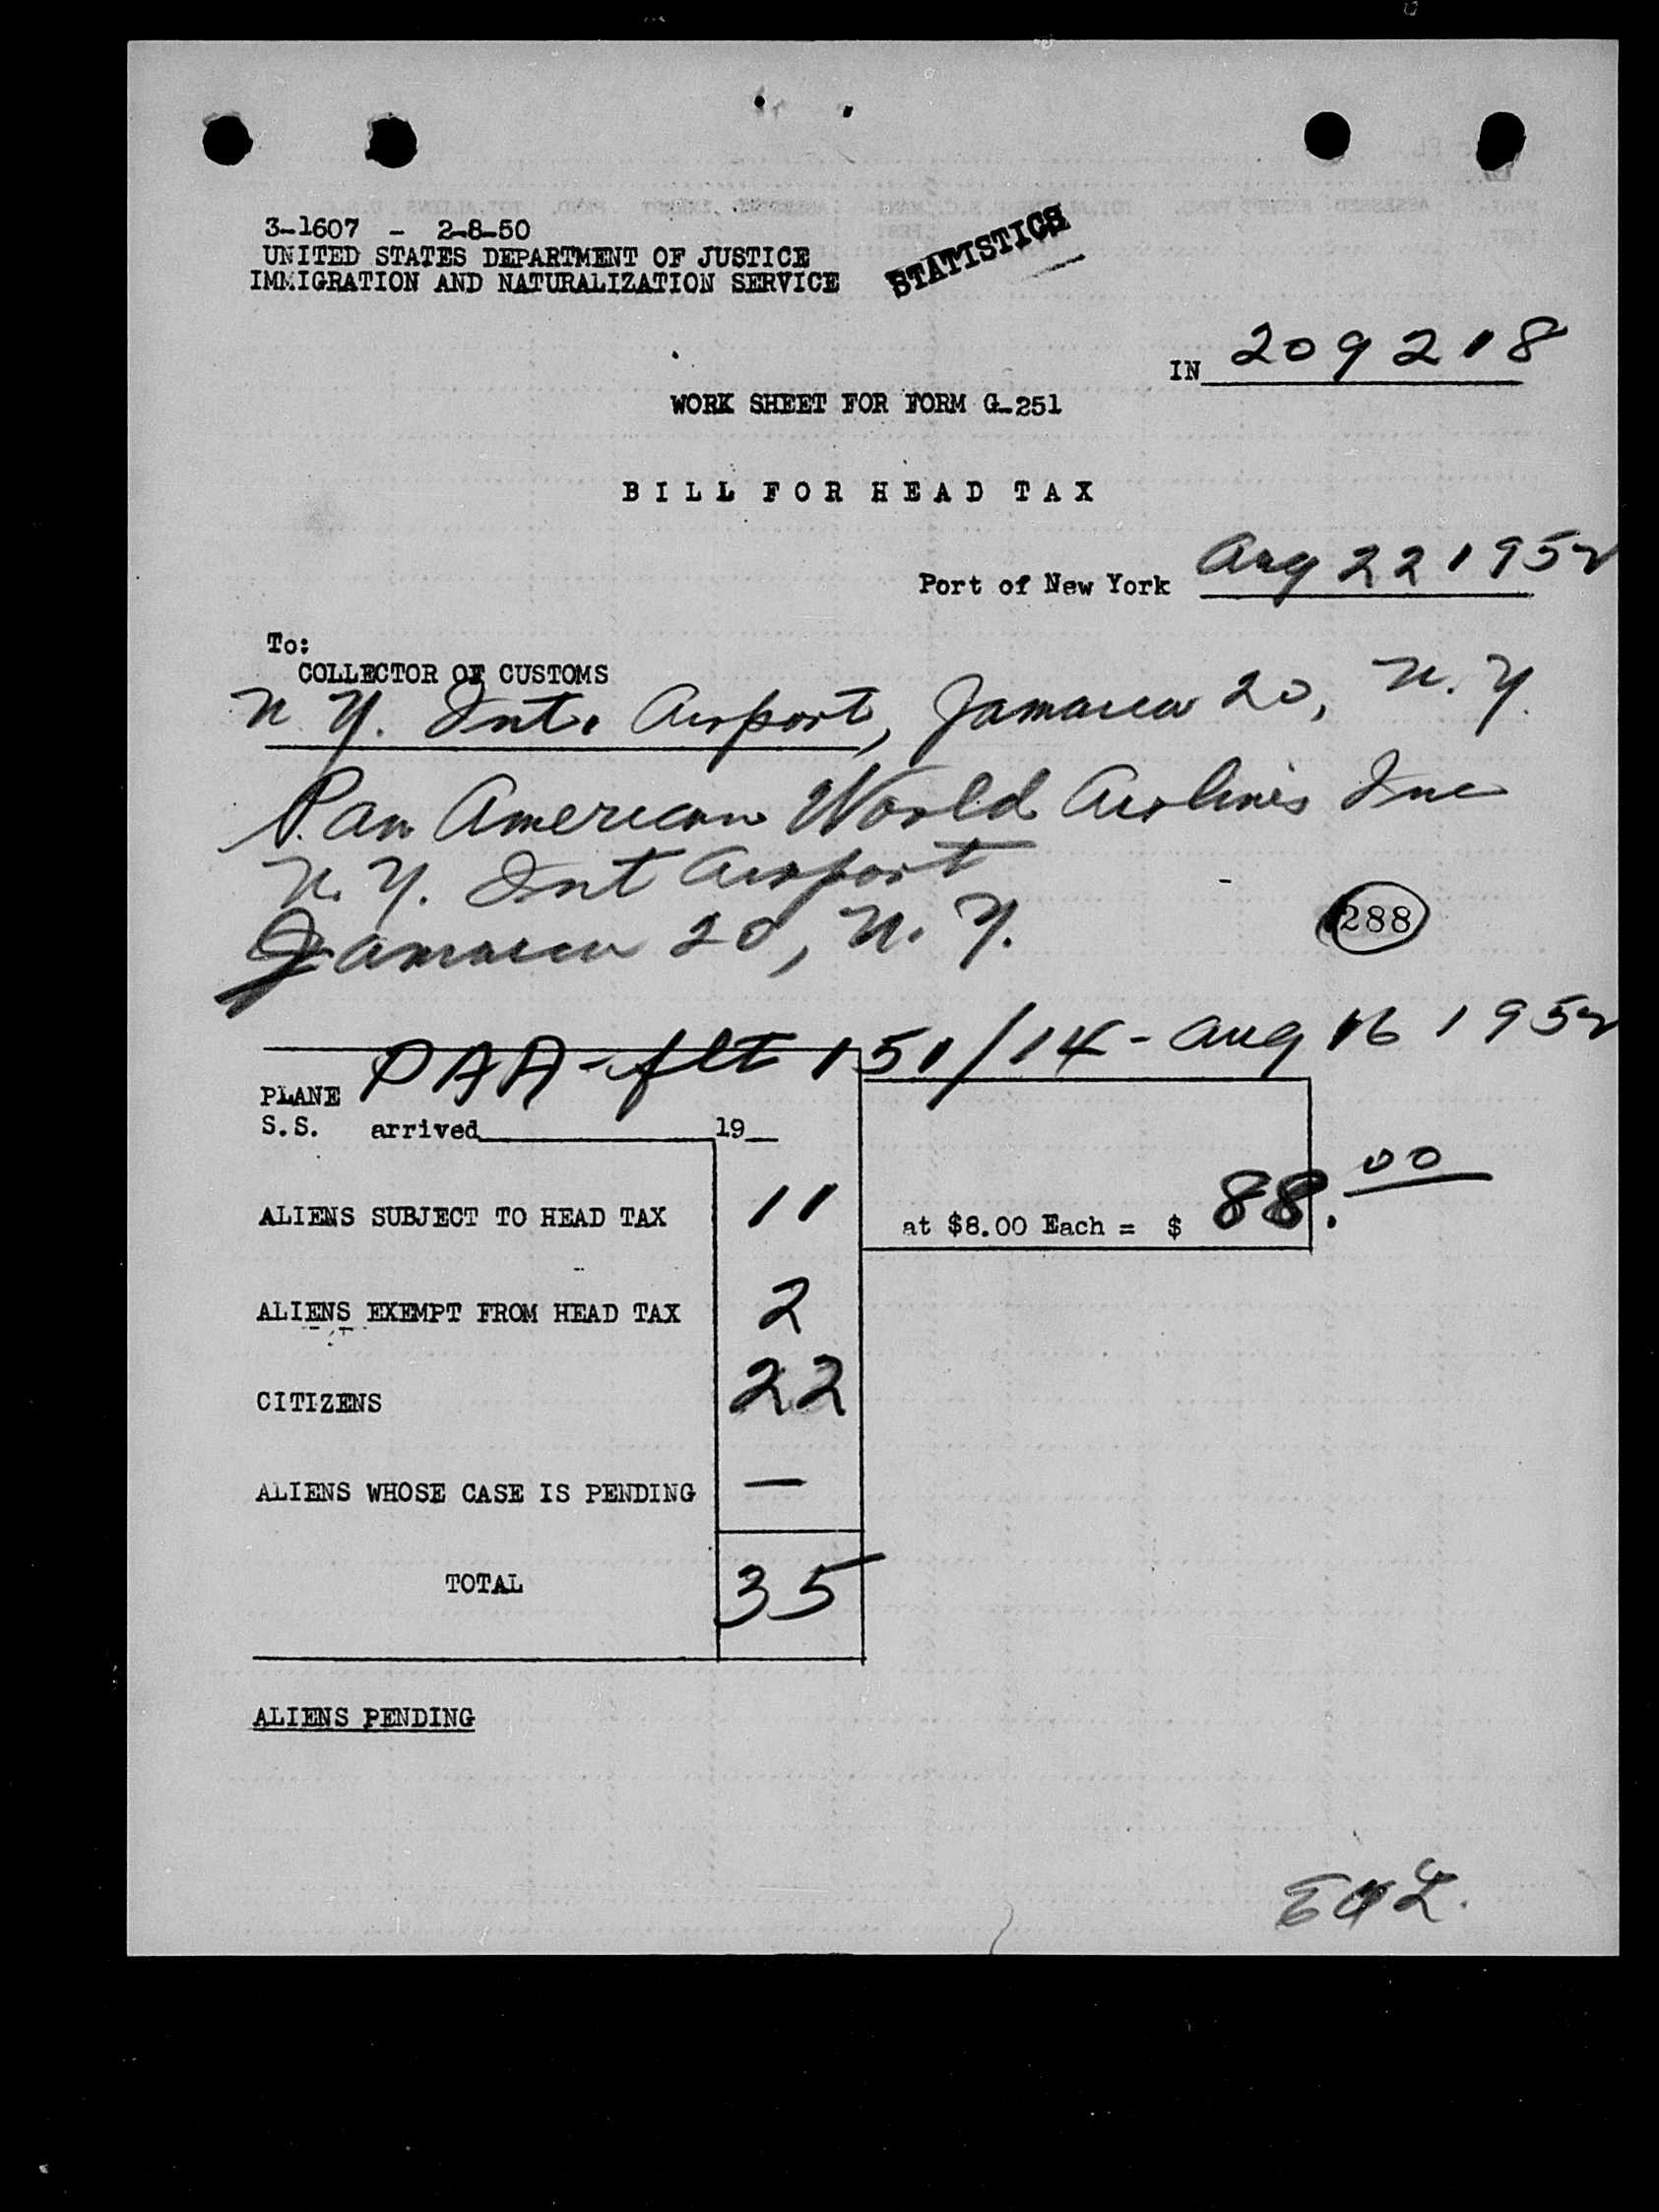 3-1607 - 2-8-50
UNITED STATES DEPARTMENT OF JUSTICE
IMMIGRATION AND NATURALIZATION SERVICE
STATISTICS
IN 209218
WORK SHEET FOR FORM G-251
BILL FOR HEAD TAX
Port of New York Aug 22 1952
To:
COLLECTOR OF CUSTOMS
N.Y. Int. Airport, Jamaica 20, N.Y.
Pan American World Airlines Inc
N.Y. Int Airport
Jamaica 20, N.Y.
288
PAA-flt 151/14-Aug 16 1952
PLANE
S.S. arrived 19
ALIENS SUBJECT TO HEAD TAX 11 at $8.00 Each = $ 88.00
ALIENS EXEMPT FROM HEAD TAX 2
CITIZENS 22
ALIENS WHOSE CASE IS PENDING —
TOTAL 35
ALIENS PENDING